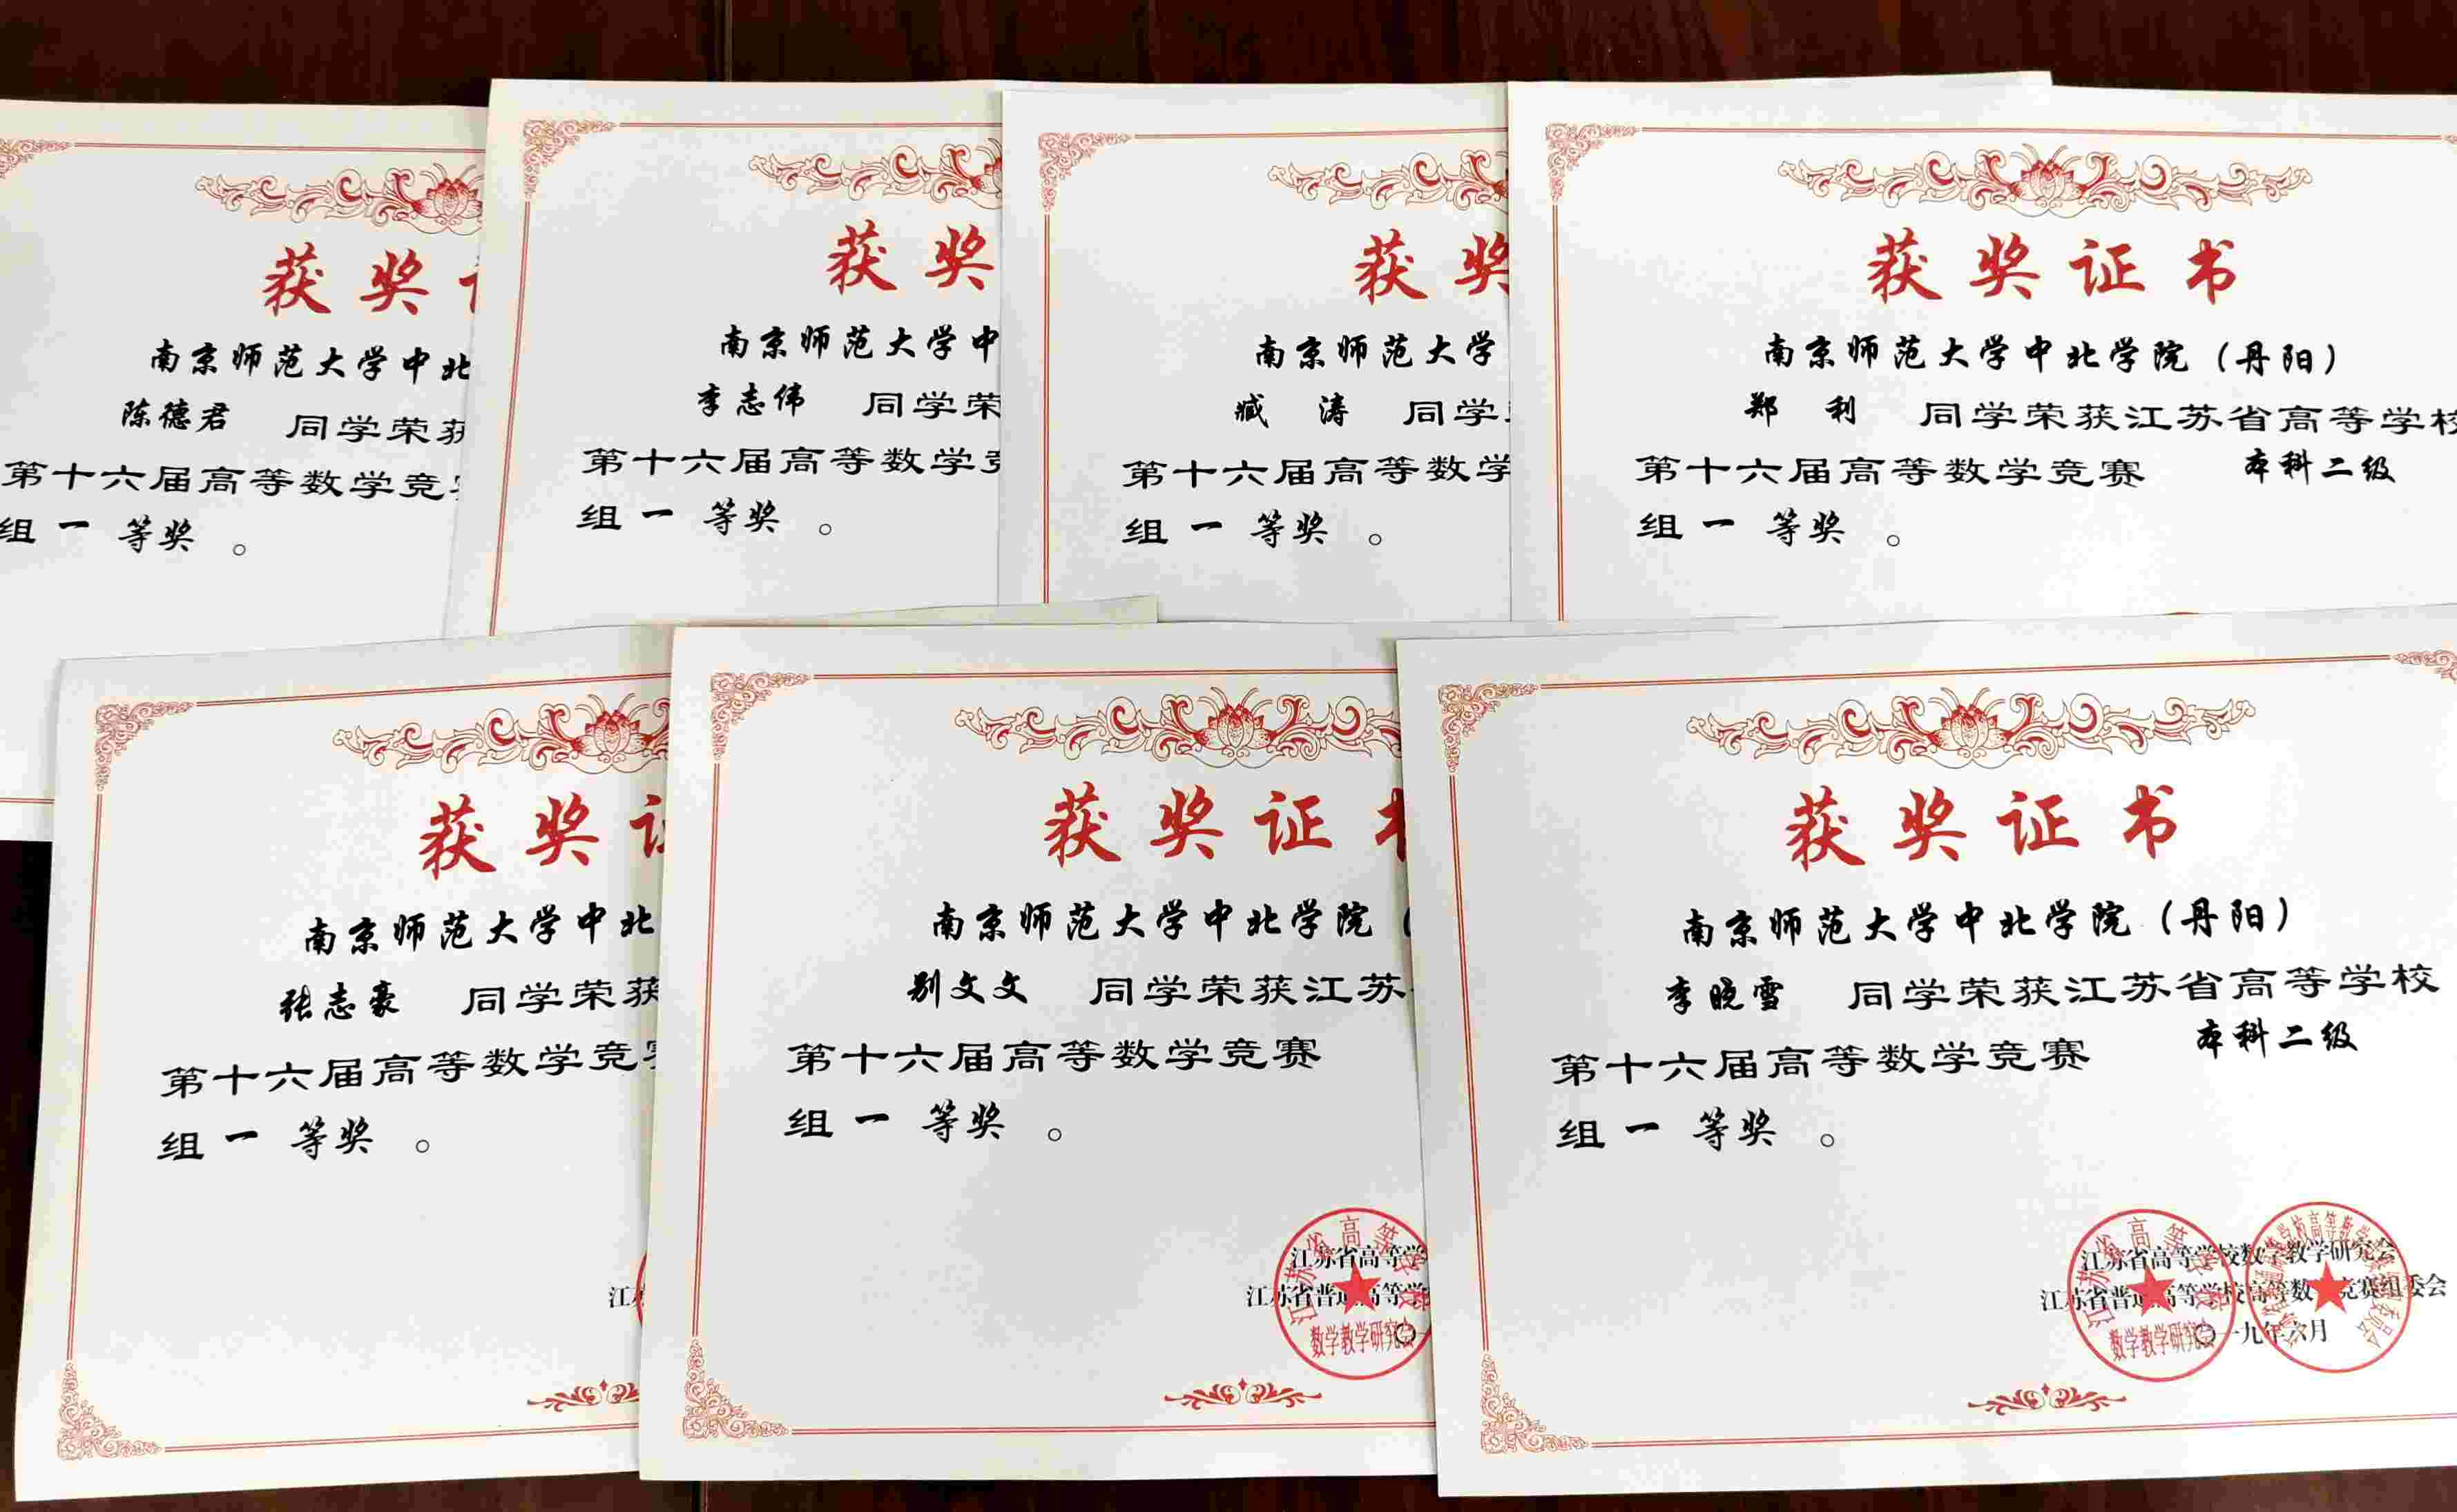 获奖
南京师范大学中北
陈德君 同学荣获
第十六届高等数学竞
组 一 等奖 。
获奖
南京师范大学中
李志伟 同学荣
第十六届高等数学
组 一 等奖 。
获奖
南京师范大学
臧 涛 同学
第十六届高等数学
组 一 等奖 。
获奖证书
南京师范大学中北学院（丹阳）
郑 利 同学荣获江苏省高等学校
第十六届高等数学竞赛 本科二级
组 一 等奖 。
获奖
南京师范大学中北
张志豪 同学荣获
第十六届高等数学竞
组 一 等奖 。
江
获奖证
南京师范大学中北学院（
别文文 同学荣获江苏
第十六届高等数学竞赛
组 一 等奖 。
江苏省高等学
江苏省普通高等学
数学教学研究会
获奖证书
南京师范大学中北学院（丹阳）
李晓雪 同学荣获江苏省高等学校
第十六届高等数学竞赛 本科二级
组 一 等奖 。
江苏省高等学校数学教学研究会
江苏省普通高等学校高等数学竞赛组委会
二〇一九年六月
数学教学研究会